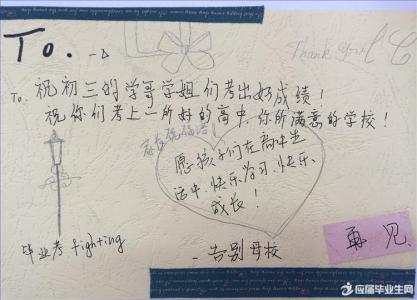 To.
Thank you!
To. 祝初三的学哥学姐们考出好成绩！
祝你们考上一所好的高中，你所满意的学校！
愿孩子们在高中生
活中，快乐学习，快乐
成长！
毕业考 fighting
-告别母校
再见
应届毕业生网